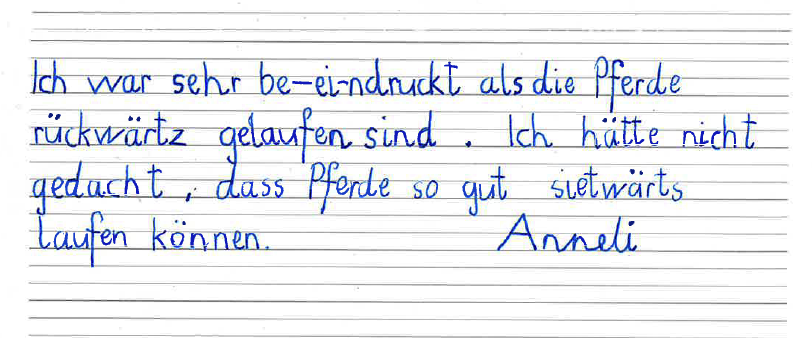 Ich war sehr be-ei-ndruckt als die Pferde
rückwärtz gelaufen sind. Ich hätte nicht
gedacht, dass Pferde so gut sietwärts
laufen können. Anneli